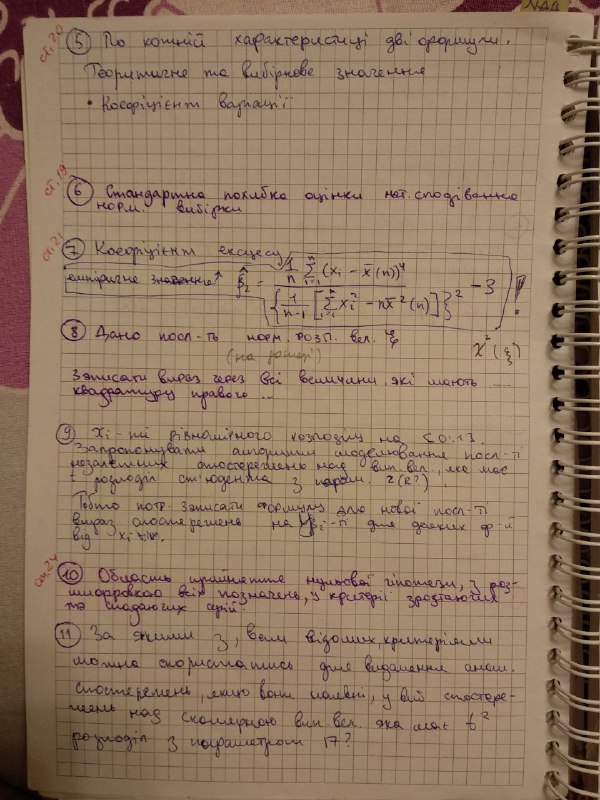 NAA
ст. 20
⑤ По кожній характеристиці дві формули.
Теоритичне та вибіркове значення
• Коефіцієнт варіації
ст. 19
⑥ Стандартна похибка оцінки мат. сподівання
норм. вибірки
ст. 21
⑦ Коефіцієнт ексцесу
емпіричне значення ↑ β̂₂ = 1/n Σ(i=1..n) (xi − x̄(n))⁴ / {1/(n−1) [Σ(i=1..n) xi² − n x̄²(n)]}² − 3 !
⑧ Дано посл-ть норм. розп. вел. ξ
(на дошці) χ²(
Записати вираз через всі величини, які мають ...
правого ...
⑨ xi - ті рівномірного розподілу на [0;1].
Запропонувати алгоритм моделювання посл-ті
незалежних спостережень над вип. вел., яка має
t розподіл ст'юдента з парам. 2 (к?).
Тобто потр. записати формулу для нової посл-ті
вираз спостережень на -ті для деяких ф-й
від xi
ст. 24
⑩ Область прийняття нульової гіпотези, з роз-
шифровкою всіх позначень, у критерії зростаючих
та спадаючих серій.
⑪ За якими з, вам відомих, критеріями
можна скористатись для видалення аном.
спостережень, якщо вони наявні, у виб. спостере-
жень над скалярною вип. вел. яка має t²
розподіл з параметром 17?